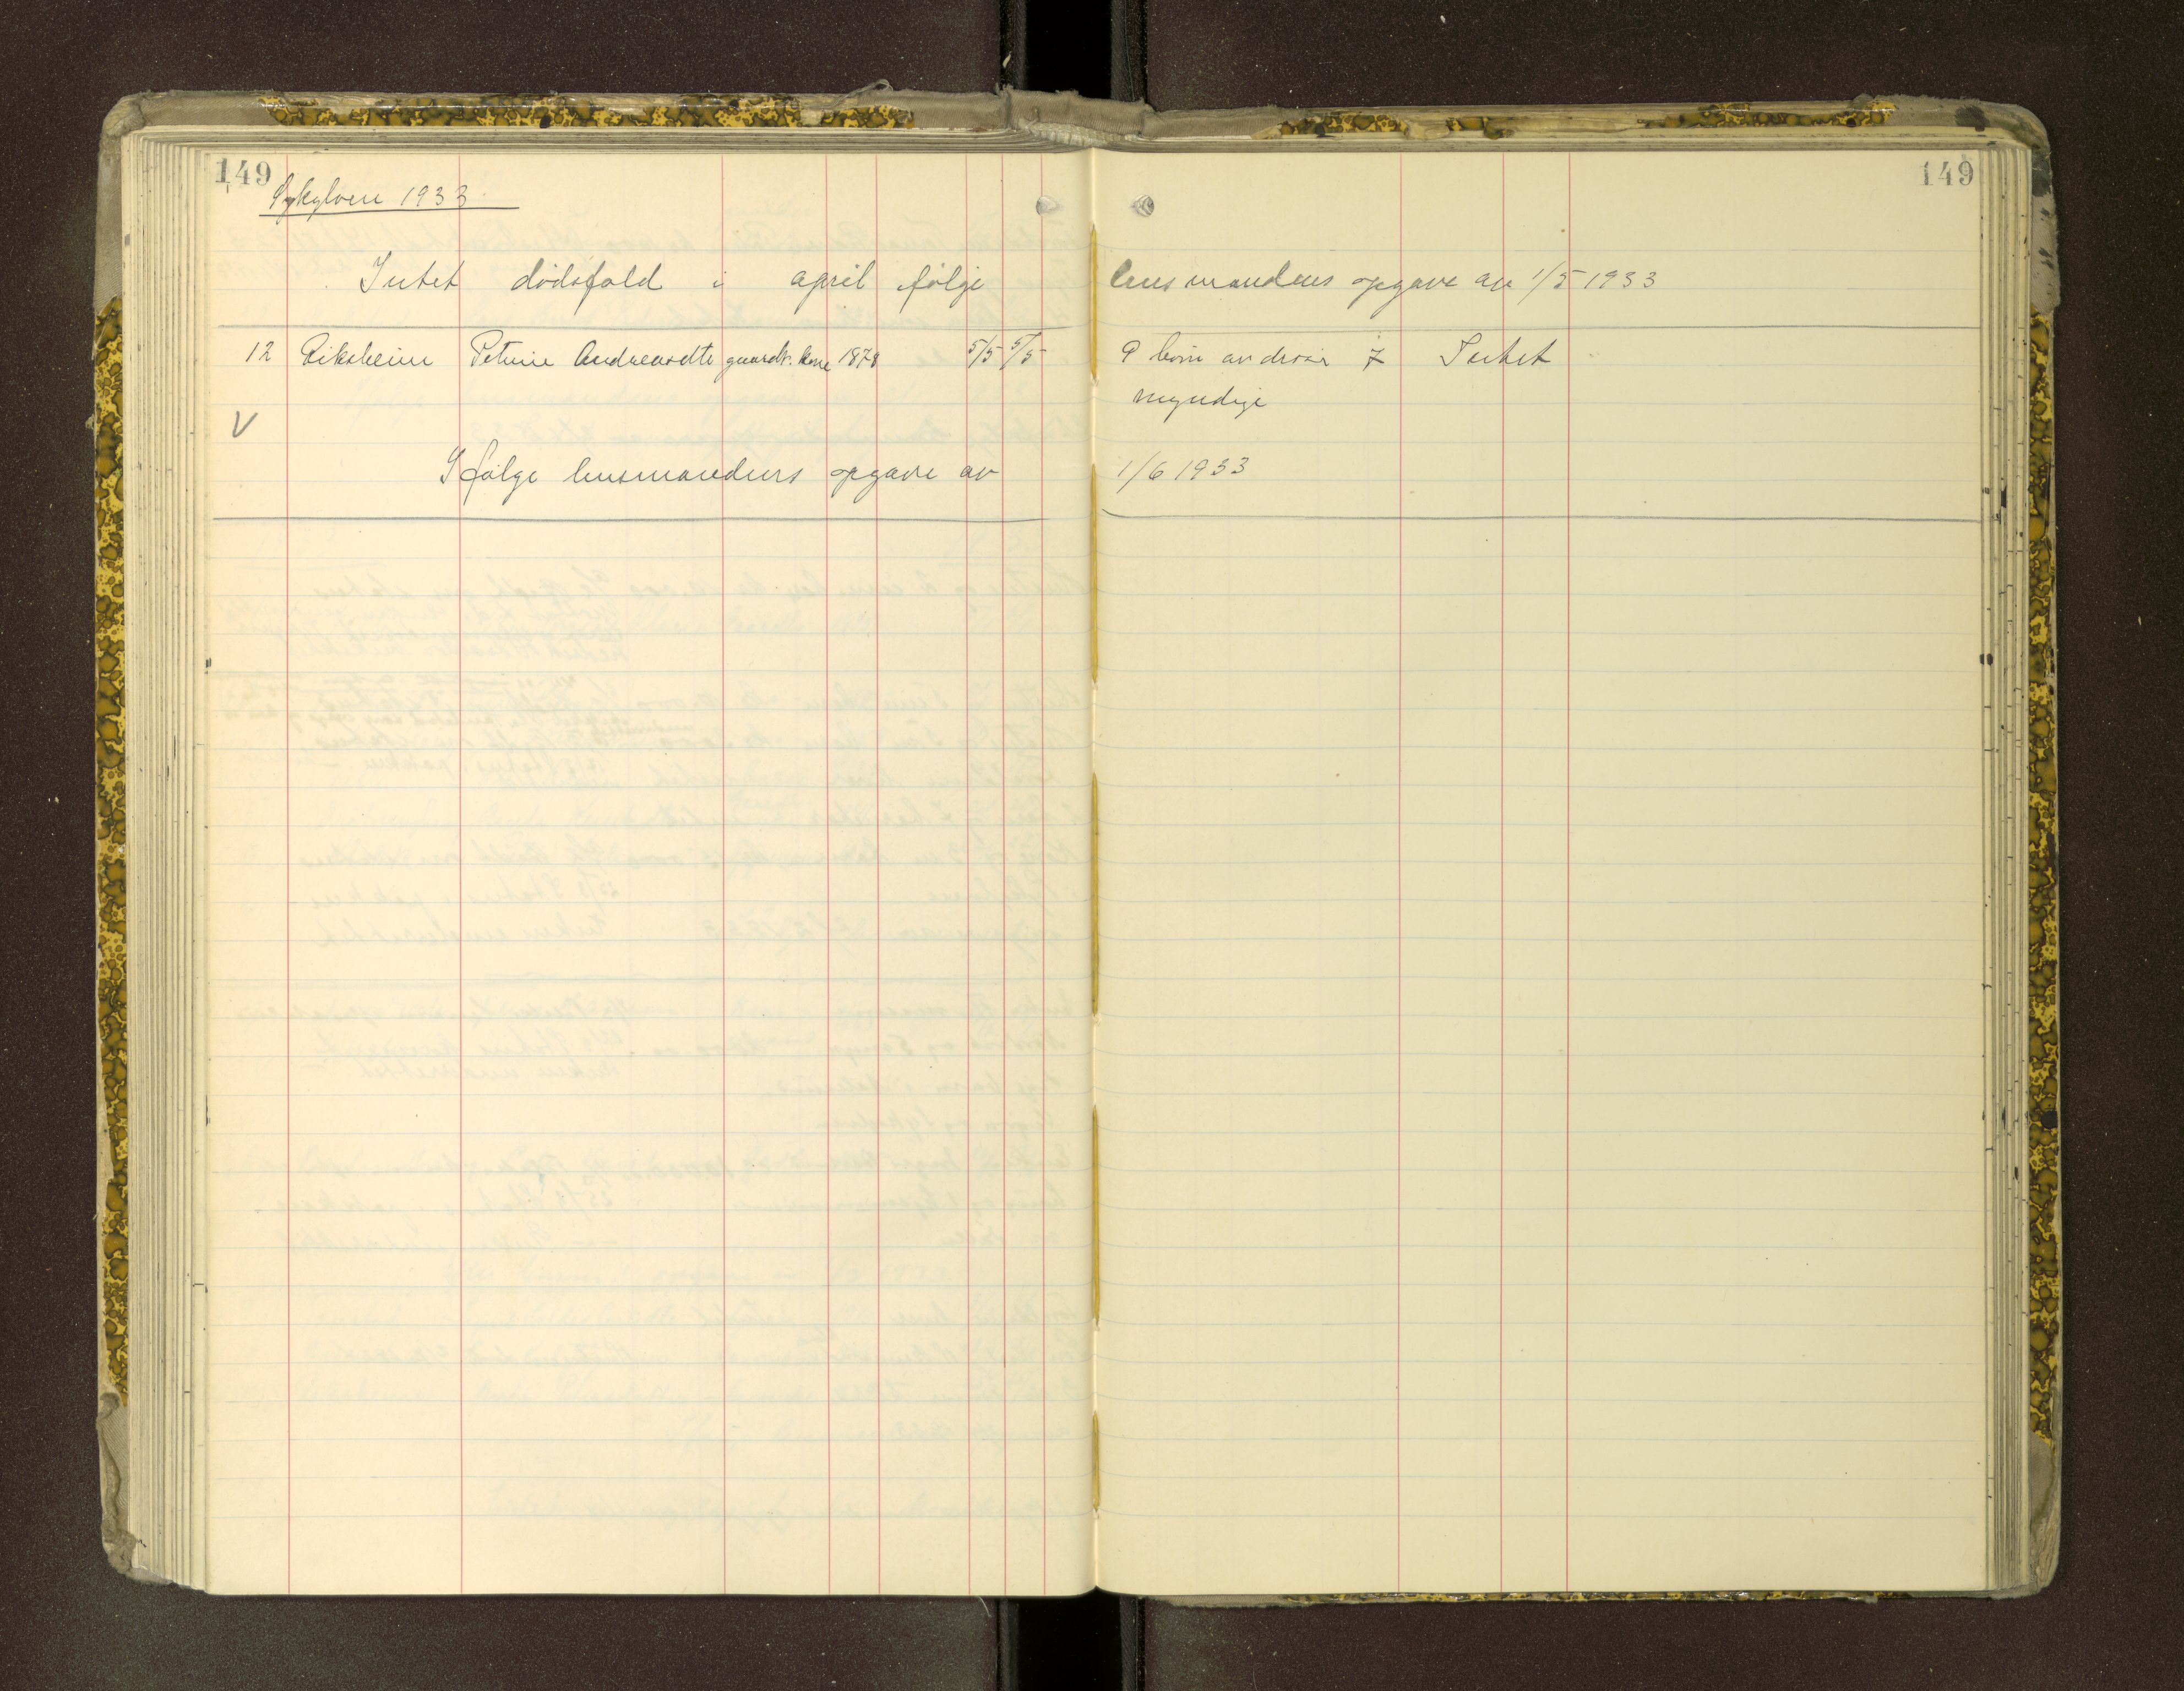 149
149
Sykylven 1933
Intet dødsfald i april følge lensmandens opgave av 1/5 1933
12 Riksheim Petrine Andreasdtr gaardk. kone 1878 5/5 5/5 9 barn av disse 7 Intet
myndige
V
Ifølge lensmandens opgave av 1/6 1933